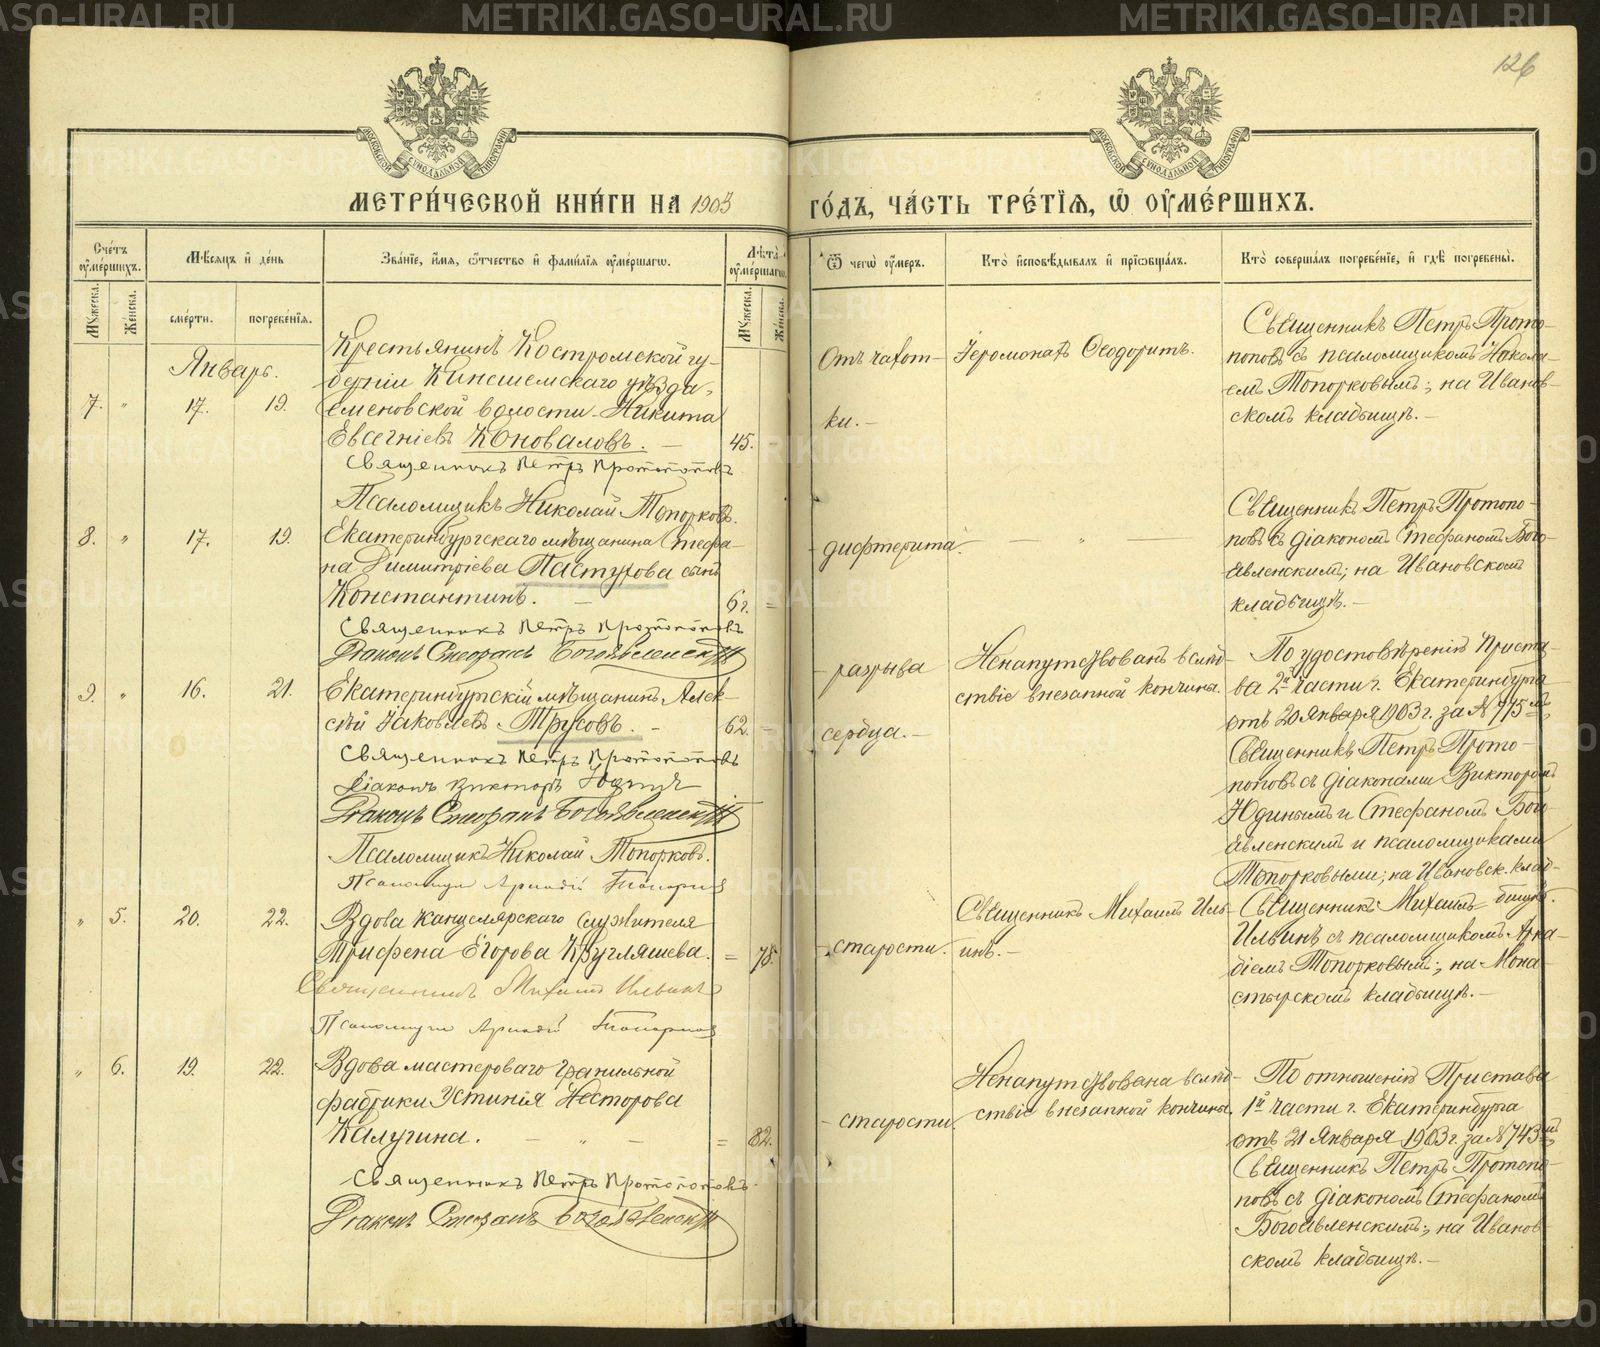 126
МОСКОВСКОЙ СУНОДАЛЬНОЙ ТИПОГРАФІИ
МОСКОВСКОЙ СУНОДАЛЬНОЙ ТИПОГРАФІИ
МЕТРИ́ЧЕСКОЙ КНИ́ГИ НА 1903
ГО́ДЪ, ЧА́СТЬ ТРЕ́ТІЯ, Ѡ ОУМЕ́РШИХЪ.
Сче́тъ оуме́ршихъ.
Мѣ́сяцъ и де́нь
Зва́ніе, и́мя, ѻ́тчество и фами́лія оуме́ршагѡ.
Лѣта̀ оуме́ршагѡ.
Ѿ чегѡ̀ оу́меръ.
Кто̀ исповѣ́дывалъ и пріѡбща́лъ.
Кто̀ соверша́лъ погребе́ніе, и гдѣ̀ погребены̀.
Му́жеска.
Же́нска.
сме́рти.
погребе́нія.
Му́жеска.
Же́нска.
Январь.
7. " 17. 19.
Крестьянинъ Костромской гу-
берніи Кинешемскаго уѣзда,
Семеновской волости Никита
Евсегніевъ Коноваловъ. — 45.
Священникъ Петръ Протопоповъ
Псаломщикъ Николай Топорковъ.
Отъ чахот-
ки. —
Іеромонахъ Ѳеодоритъ.
Священникъ Петръ Прото-
поповъ съ псаломщикомъ Никола-
емъ Топорковымъ; на Иванов-
скомъ кладбищѣ. —
8. " 17. 19.
Екатеринбургскаго мѣщанина Стефа-
на Димитріева Пастухова сынъ
Константинъ. — 6 г. =
Священникъ Петръ Протопоповъ
Діаконъ Стефанъ Богоявленскій
- дифтерита.
— " —
Священникъ Петръ Протопо-
повъ съ діакономъ Стефаномъ Бого-
явленскимъ; на Ивановскомъ
кладбищѣ. —
9. " 16. 21.
Екатеринбургскій мѣщанинъ Алек-
сѣй Іаковлевъ Трусовъ. - 62. -
Священникъ Петръ Протопоповъ
Діаконъ Викторъ Юдинъ
Діаконъ Стефанъ Богоявленскій
Псаломщикъ Николай Топорковъ.
Псаломщикъ Аркадій Топорковъ
- разрыва
сердца. —
Ненапутствованъ вслѣд-
ствіе внезапной кончины.
По удостовѣренію Приста-
ва 2й части г. Екатеринбурга
отъ 20 Января 1903 г. за № 775мъ,
Священникъ Петръ Прото-
поповъ съ діаконами Викторомъ
Юдинымъ и Стефаномъ Бого-
явленскимъ и псаломщиками
Топорковыми; на Ивановск. клад-
бищѣ.
" 5. 20. 22.
Вдова Канцелярскаго Служителя
Трифена Егорова Кругляшева. = 78.
Священникъ Михаилъ Ильинъ
Псаломщикъ Аркадій Топорковъ
- старости.
Священникъ Михаилъ Иль-
инъ. —
Священникъ Михаилъ
Ильинъ съ псаломщикомъ Арка-
діемъ Топорковымъ; на Мона-
стырскомъ кладбищѣ. —
" 6. 19. 22.
Вдова мастероваго Гранильной
фабрики Устинія Несторова
Калугина. — " — = 82.
Священникъ Петръ Протопоповъ.
Діаконъ Стефанъ Богоявленскій
- старости.
Ненапутствована вслѣд-
ствіе внезапной кончины.
По отношенію Пристава
1й части г. Екатеринбурга
отъ 21 Января 1903 г. за № 743мъ,
Священникъ Петръ Протопо-
повъ съ діакономъ Стефаномъ
Богоявленскимъ; на Иванов-
скомъ кладбищѣ. —
METRIKI.GASO-URAL.RU